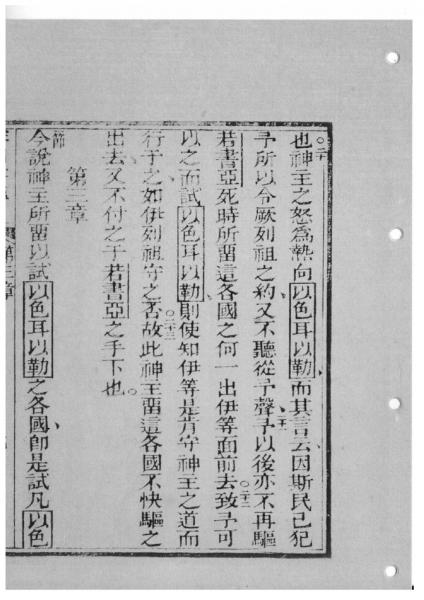 ○二十也神主之怒為熱向以色耳以勒而其言云因斯民已犯
予所以令厥列祖之約又不聽從予聲二十一予以後亦不再驅
若書亞死時所留這各國之何一出伊等面前去○二十二致予可
以之而試以色耳以勒則使知伊等是肯守神主之道而
行于之如伊列祖守之否○二十三故此神主留這各國不快驅之
出去又不付之于若書亞之手下也○
第三章
節今說神主所留以試以色耳以勒之各國卽是試凡以色
第三章